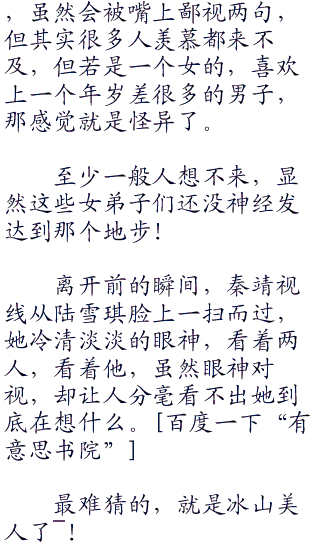 ，虽然会被嘴上鄙视两句，
但其实很多人羡慕都来不
及，但若是一个女的，喜欢
上一个年岁差很多的男子，
那感觉就是怪异了。
至少一般人想不来，显
然这些女弟子们还没神经发
达到那个地步！
离开前的瞬间，秦靖视
线从陆雪琪脸上一扫而过，
她冷清淡淡的眼神，看着两
人，看着他，虽然眼神对
视，却让人分毫看不出她到
底在想什么。[百度一下“有
意思书院”]
最难猜的，就是冰山美
人了ˉ！